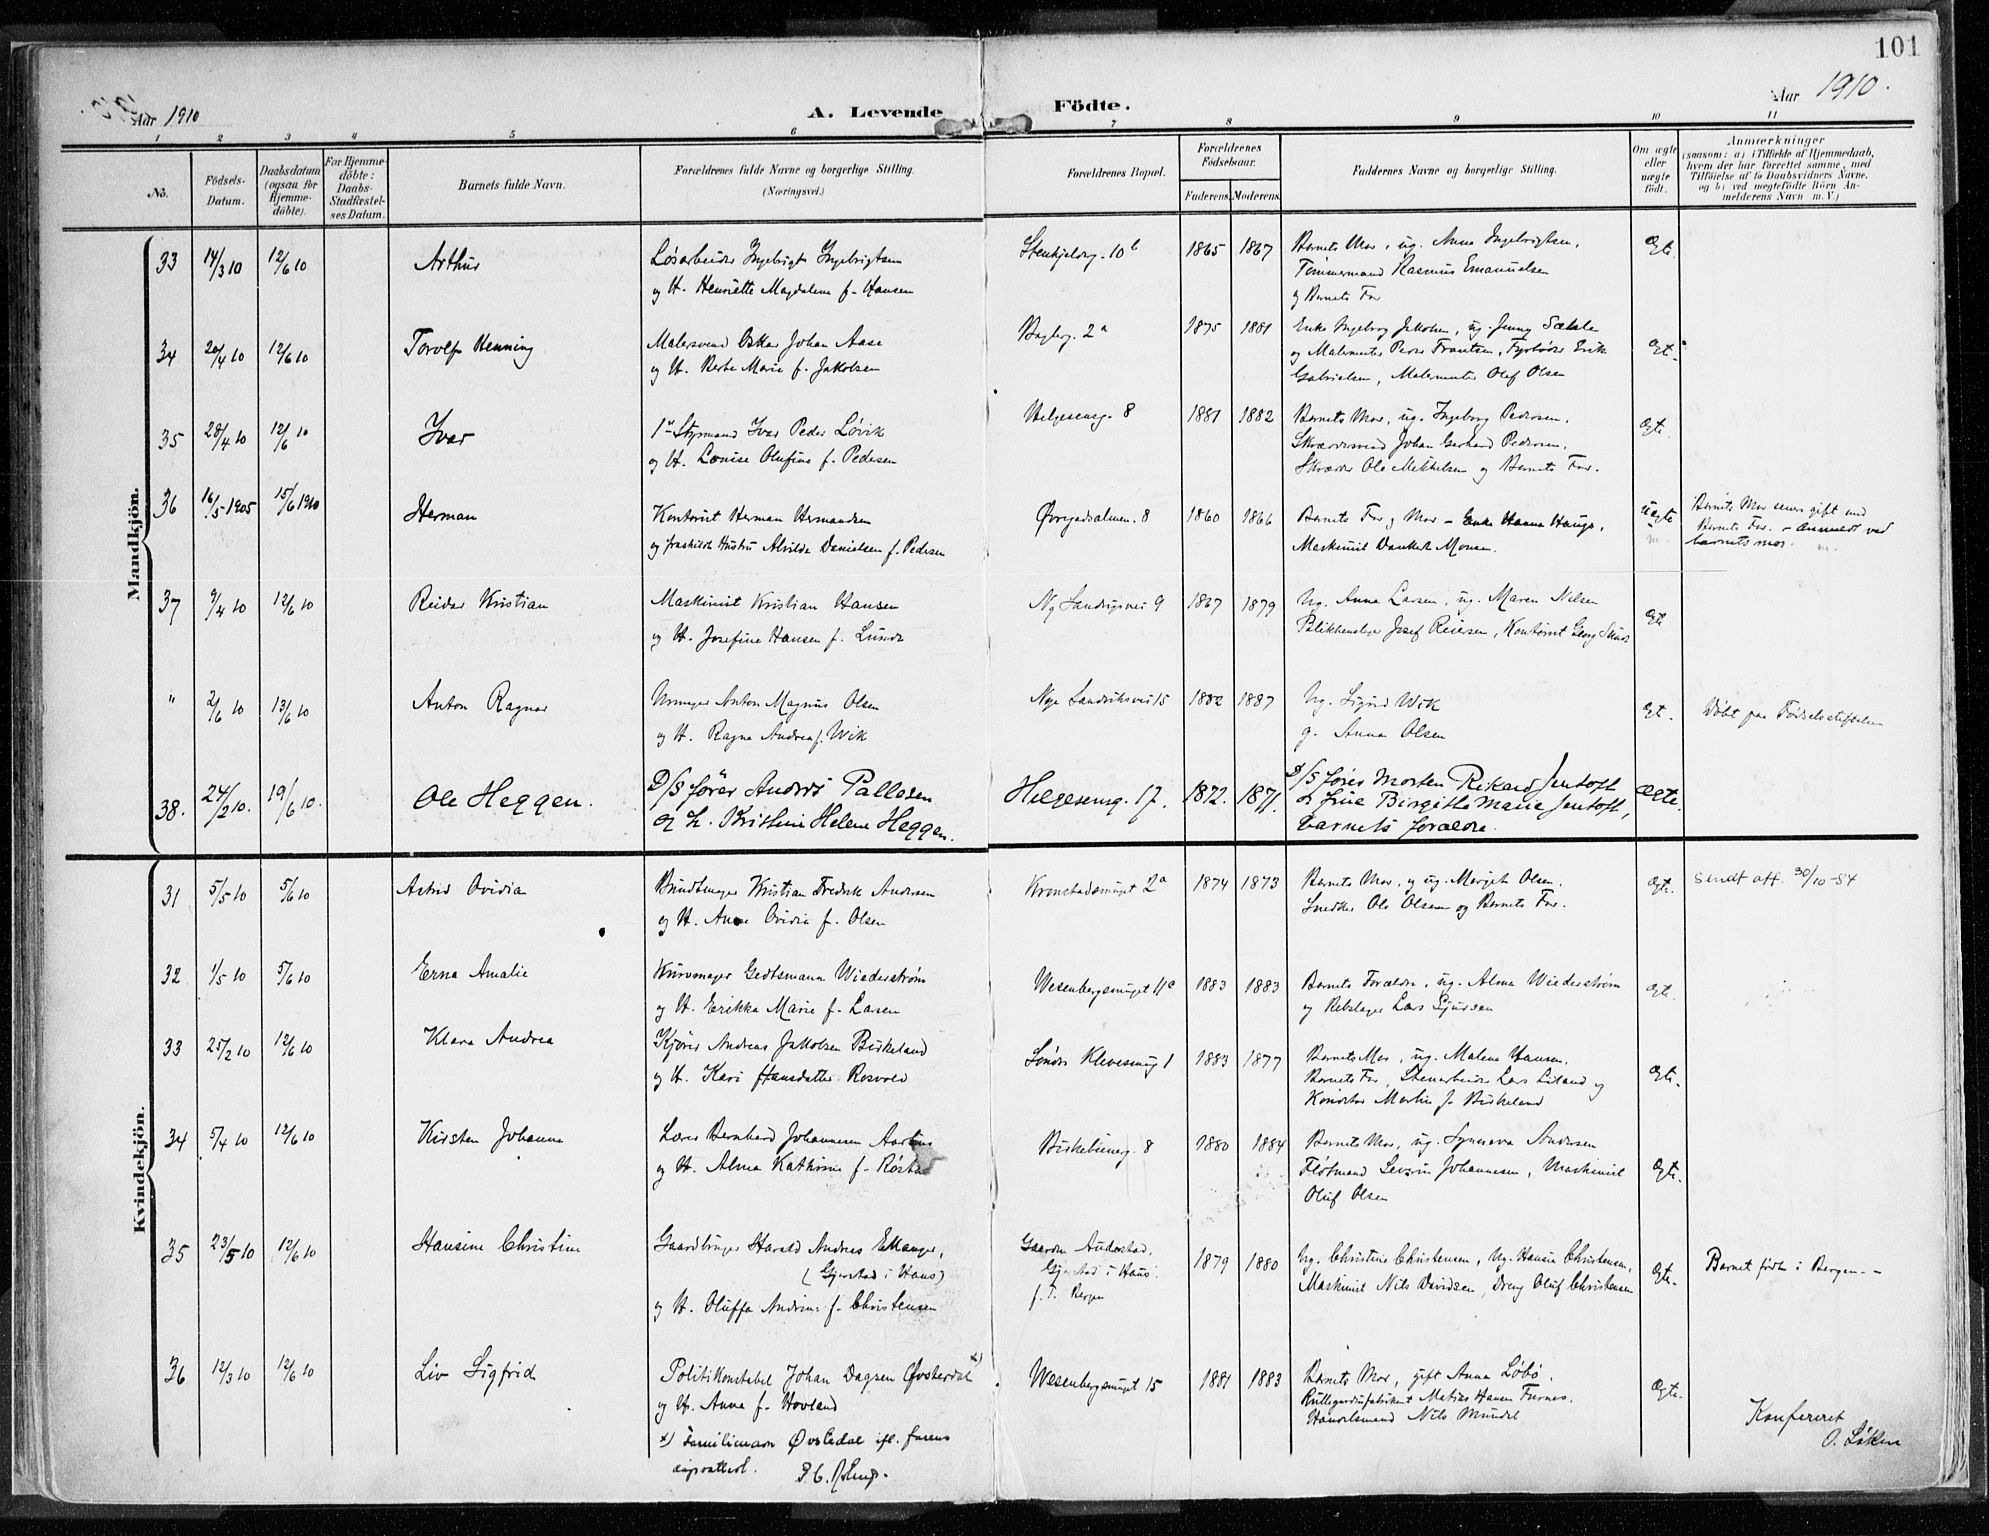 101
Aar 1910
A. Levende
Födte.
Aar 1910.
1 2 3 4 5 6 7 8 9 10 11
No.
Födsels-
Datum.
Daabsdatum
(ogsaa for
Hjemme-
döbte).
For Hjemme-
döbte:
Daabs-
Stadfæstel-
ses Datum.
Barnets fulde Navn.
Forældrenes fulde Navne og borgerlige Stilling.
(Næringsvei.)
Forældrenes Bopæl.
Forældrenes
Födselsaar.
Faderens. Moderens.
Faddernes Navne og borgerlige Stilling.
Om ægte
eller
uægte
födt.
Anmærkninger
(saasom: a) i Tilfælde af Hjemmedaab,
hvem der har forrettet samme, med
Tilföielse af to Daabsvidners Navne,
og b) ved uægtefödte Börn An-
melderens Navn m. V.)
Mandkjön.
33 14/3 10 12/6 10 Arthur
Løsarbeider Ingebrigt Ingebrigtsen
og H. Henriette Magdalene f. Hansen
Stenkjeldrg. 10b 1865 1867
Barnets Mor, ug. Anna Ingebrigtsen,
Tømmermand Rasmus Emanuelsen
og Barnets Far
Ægte.
34 20/4 10 12/6 10 Torolf Henning
Malersvend Oskar Johan Aase
og H. Berte Marie f. Jakobsen
2a 1875 1881
Enke Ingeborg Jakobsen, ug. Jenny
og Malermester Peder Frantsen, Fyrbøder Erik
Gabrielsen, Malermester Olaf Olsen
Ægt.
35 28/4 10 12/6 10 Ivar
1ste Styrmand Ivar Peder Løvik
og H. Louise Olufine f. Pedersen
Helgesensg. 8 1881 1882
Barnets Mor, ug. Ingeborg Pedersen,
Skræddersvend Johan Gerhard Pedersen,
Skrædder Ole Mikkelsen og Barnets Far.
Ægte.
36 16/5 1905 15/6 1910 Herman
Kontorist Herman Hermansen
og fraskildt Hustru Alvilde Danielsen f. Pedersen
Øvregadsalmen. 8 1860 1866
Barnets Far og Mor - Enke Hanna Hauge,
Maskinist Danckert Monsen.
uægte
Barnets Mor senere gift med
Barnets Far. - Anmeldt ved
barnets mor.
37 9/4 10 12/6 10 Reidar Kristian
Maskinist Kristian Hansen
og H. Josefine Hansen f. Lunde
Ny Sandvigsvei 9 1867 1879
Ug. Anna Larsen, ug. Maren Nilsen
Josef Reiersen, Kontorist Georg
Ægte
" 2/6 10 13/6 10 Anton Ragnar
Urmager Anton Magnus Olsen
og H. Ragna Andrea f. Wik
Nye Sandviksvei 15 1882 1887
Ug. Sigrid Wik
g. Anna Olsen
Ægt.
Døbt paa Fødselsstiftelsen
38. 24/2 10. 19/6 10. Ole Heggen.
D/S fører Anders Pallesen
og H. Kristine Helene Heggen.
Helgesensg. 17. 1872. 1871.
D/S fører Morten Rikard Jentoft
og frue Birgitte Marie Jentoft,
barnets foreldre.
Ægte.
Kvindekjön.
31 5/5 10 5/6 10 Astrid Ovidia
Buntmager Kristian Fredrik Andersen
og H. Anna Ovidia f. Olsen
Kronstadsmuget 2a 1874 1873
Barnets Mor, og ug. Margit Olsen,
Snedker Ole Olsen og Barnets Far.
Ægte.
Sendt att. 30/10-84
32 1/5 10 5/6 10 Erna Amalie
Kurvmager Gedtsmann Wiederstrøm
og H. Erikka Marie f. Larsen
Wesenbergsmuget 11c 1883 1883
Barnets Forældre, ug. Alma Wiederstrøm
og Rebslager Lars Sjursen
Ægte.
33 25/2 10 12/6 10 Klara Andrea
Kjører Andreas Jakobsen Birkeland
og H. Kari Hansdatter Rosvold
Søndre Klevesmug 1 1883 1877
Barnets Mor, ug. Malene Hansen,
Barnets Far, Stenarbeider Lars Liland og
Konditor Martin J. Birkeland
Ægte.
34 5/4 10 12/6 10 Kirsten Johanne
Lærer Bernhard Johannesen
og H. Alma Kathrine f.
Birkebeinerg. 8 1880 1884
Barnets Mor, ug. Synneva Andersen
Fløtmand Severin Johannesen, Maskinist
Oluf Olsen
Ægte.
35 23/5 10 12/6 10 Hansine Christine
Gaardbruger Harald Andreas Ellanger,
(Gjerstad i Haus)
og H. Oluffa Andrine f. Christensen
Gaarden Aadestad,
Gjerstad i Haus.
f. T. Bergen
1879 1880
Ug. Christine Christensen, Ug. Hansine Christensen,
Maskinist Nils Davidsen, Dreng Oluf Christensen
Ægte.
Barnet født i Bergen. -
36 12/3 10 12/6 10 Liv Sigfrid
Politikonstabel Johan Dagsen Øvsterdal x)
og H. Anna f. Hovland
x) Familienavn Øvstedal ifl. farens
dåpsattest.
Wesenbergsmuget 15 1881 1883
Barnets Mor, gift Anna Løbø,
Rullegardinfabrikant Matias Hansen Furnes,
Handelsmand Nils Mundal
Ægte.
Konfereret
O. Løken